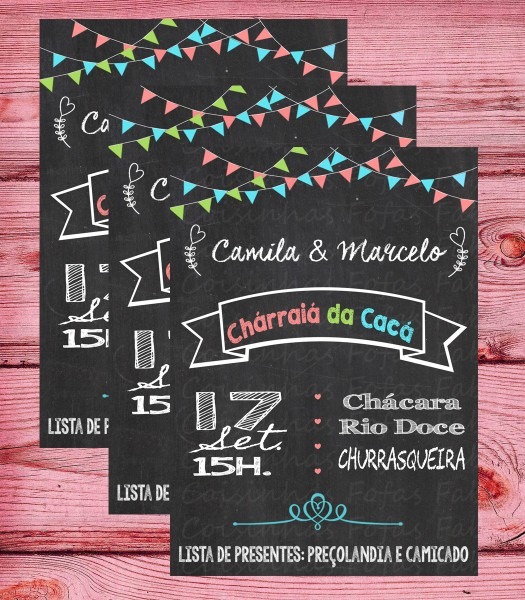 Camila & Marcelo
Chárraiá da Cacá
17
Set.
15H.
Chácara
Rio Doce
CHURRASQUEIRA
LISTA DE PRESENTES: PREÇOLANDIA E CAMICADO
Ca
17
15H
LISTA DE P
15
LISTA DE